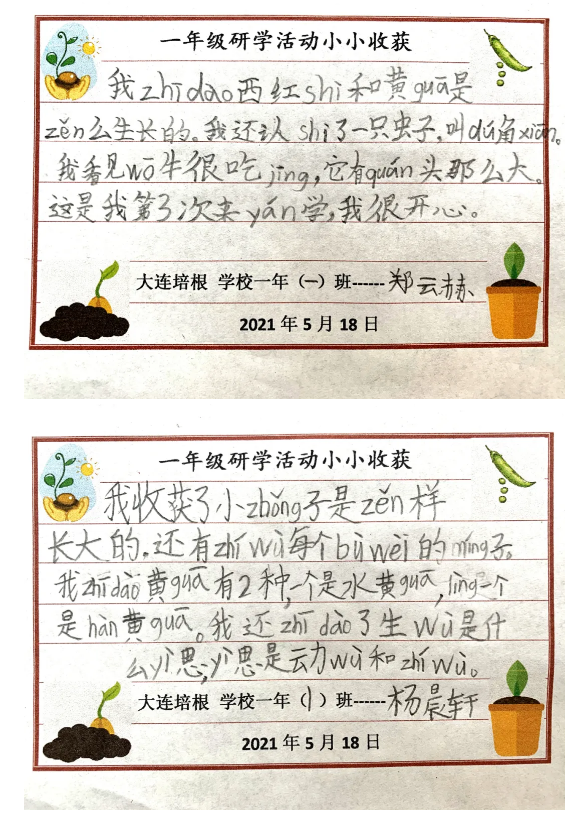 一年级研学活动小小收获
我zhīdao西红shì和黄guā是
zěn么生长的。我还认shí了一只虫子,叫dú角xiān。
我看见wō牛很吃jīng,它有quán头那么大。
这是我第3次来yán学,我很开心。
大连培根 学校一年（一）班------郑云赫
2021年5月18日
一年级研学活动小小收获
我收获了小zhǒng子是zěn样
长大的。还有zhí wù每个bù wèi的míng子。
我zhīdào黄guā有2种,一个是水黄guā,lìng一个
是hàn黄guā。我还zhī dào了生wù是什
么yì思,yì思是动wù和zhí wù。
大连培根 学校一年（1）班------杨晨轩
2021年5月18日